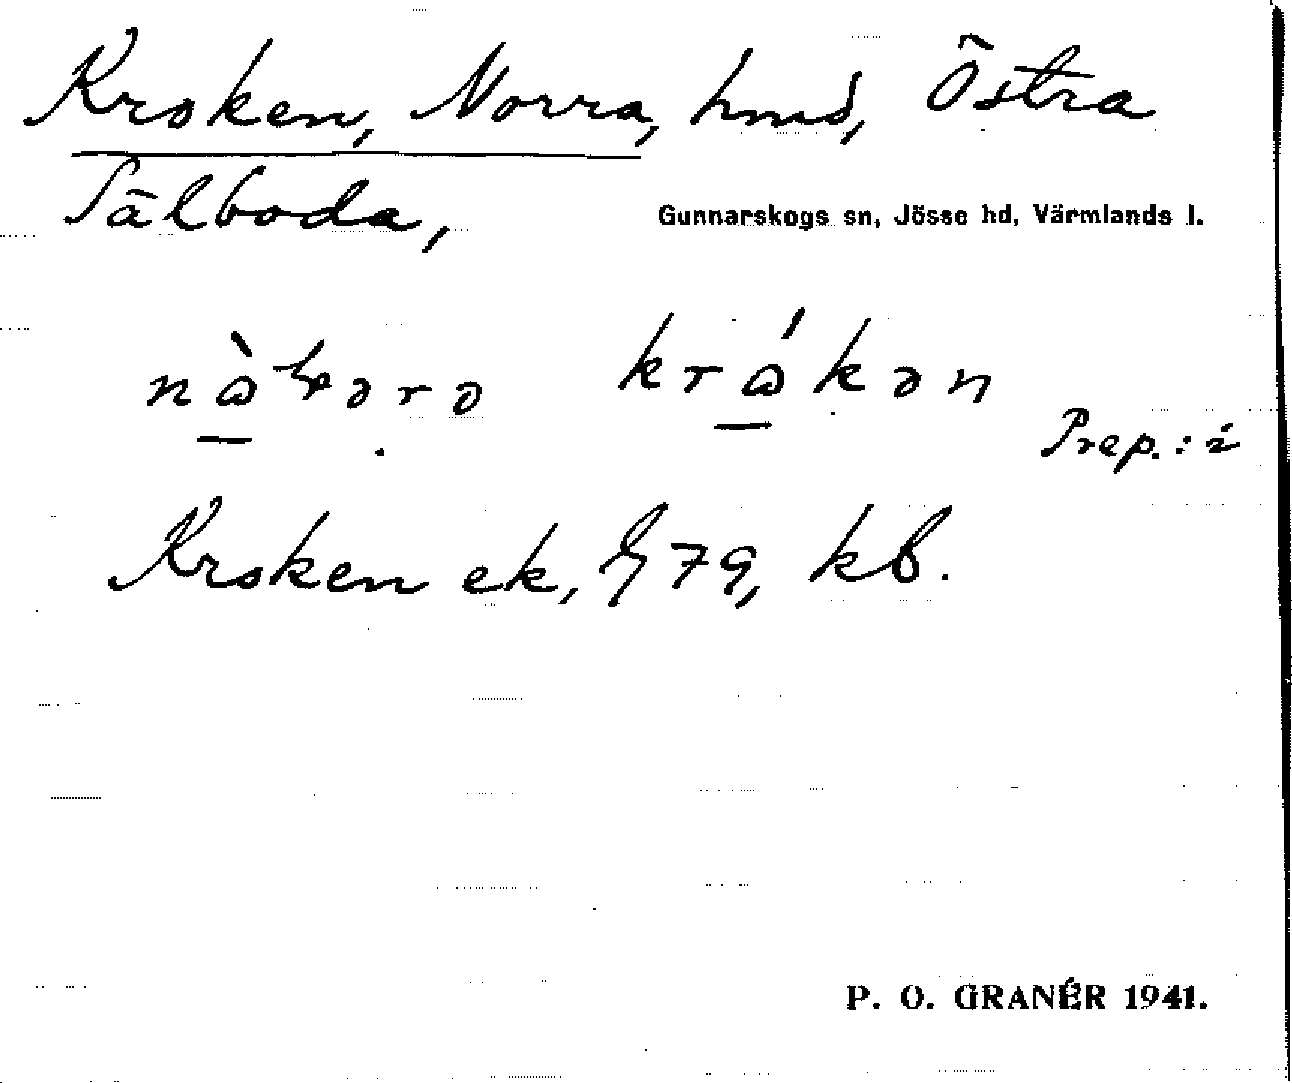 Kroken, Norra, hmd, Östra
Sälboda,
Gunnarskogs sn, Jösse hd, Värmlands l.
krɷ́kən
Prep.: i
Kroken ek, 79, kb.
P. O. GRANÉR 1941.